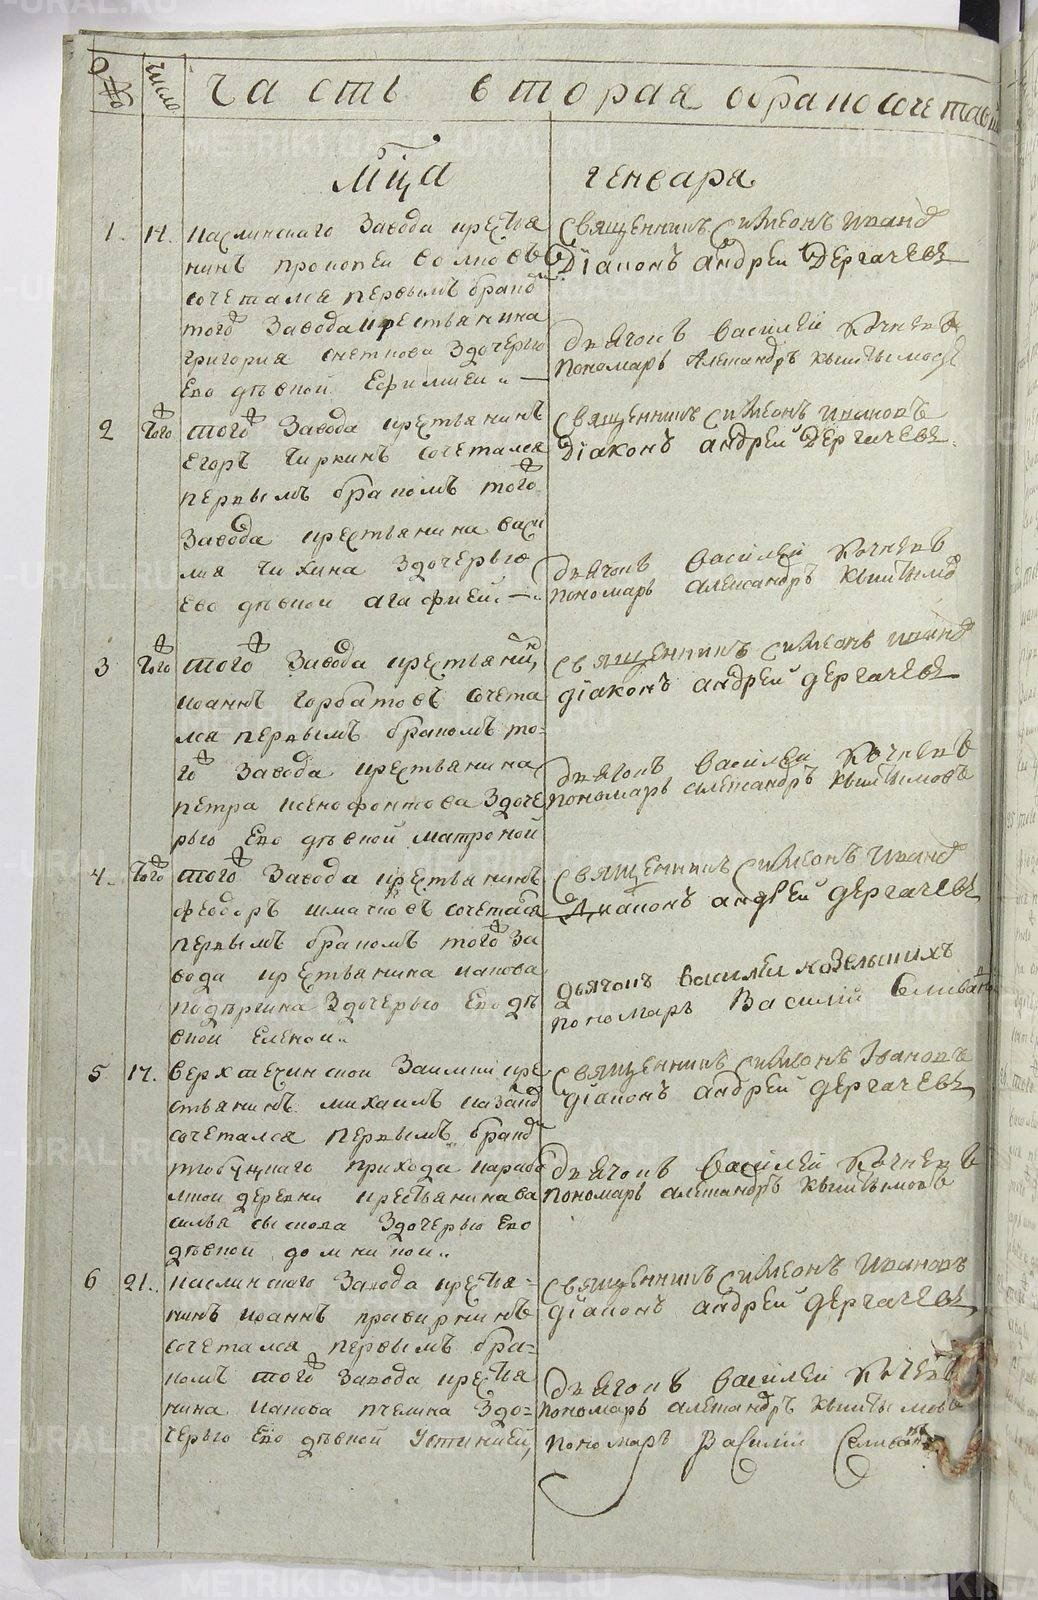 число
часть вторая о бракосочетав
мца генваря
1. 14. каслинскаго завода крестья
нинъ прокопеи волковъ
сочетался первымъ бракѡ
тогѡ завода крестьянина
григория снеткова здочерью
Ево дѣвкой Ефимиеи
священникъ симеонъ иванѡ
Діаконъ андреи Дергачевъ
дьячокъ василеи Кочневъ
пономарь александръ кыштымовъ
2 тогѡ тогѡ завода крестьянинъ
Егоръ Чиркинъ сочетался
первымъ бракомъ тогѡ
завода крестьянина васи
лия чихина здочерью
Ево дѣвкои агафиеи
священникъ симеонъ ивановъ
Діаконъ андреи Дергачевъ
дьячокъ василеи Кочневъ
пономарь александръ кыштымѡ
3 тогѡ тогѡ завода крестьянинъ
иоаннъ горбатовъ сочета
лся первымъ бракомъ то-
гѡ завода крестьянина
петра ксенофонтова здоче
рью Ево дѣвкой матроной
священникъ симеонъ иванѡ
діаконъ андреи дергачевъ
дьячокъ василеи Кочневъ
пономарь александръ кыштымовъ
4. тогѡ тогѡ завода крестьянинъ
феодоръ шмаковъ сочетался
первымъ бракомъ тогѡ за
вода крестьянина иакова
здочерью Ево дѣ
вкои Еленои
священникъ симеонъ иванѡ
диаконъ андреи дергачевъ
дьячокъ василеи козельскихъ
пономаръ Василий Селивано
5 17. верхтечинскои заимки кре
стьянинъ михаилъ казанѡ
сочетался первымъ бракѡ
прихода караба
лкои деревни крестьянина ва
силья сыскова здочерью Ево
дѣвкои домникои
священникъ симеонъ Ивановъ
діаконъ андреи дергачевъ
дьячокъ василеи Кочневъ
пономарь александръ кыштымовъ
6 21. каслинскаго завода крестья-
нинъ иоаннъ
сочетался первымъ бра-
комъ тогѡ завода крестья
нина иакова пчелина здо-
черью Ево дѣвкой Устиниеи,
священникъ симеонъ ивановъ
діаконъ андреи дергачевъ
дьячокъ василеи Кочневъ
пономарь александръ кыштымовъ
пономаръ Василий Селивано
METRIKI.GASO-URAL.RU